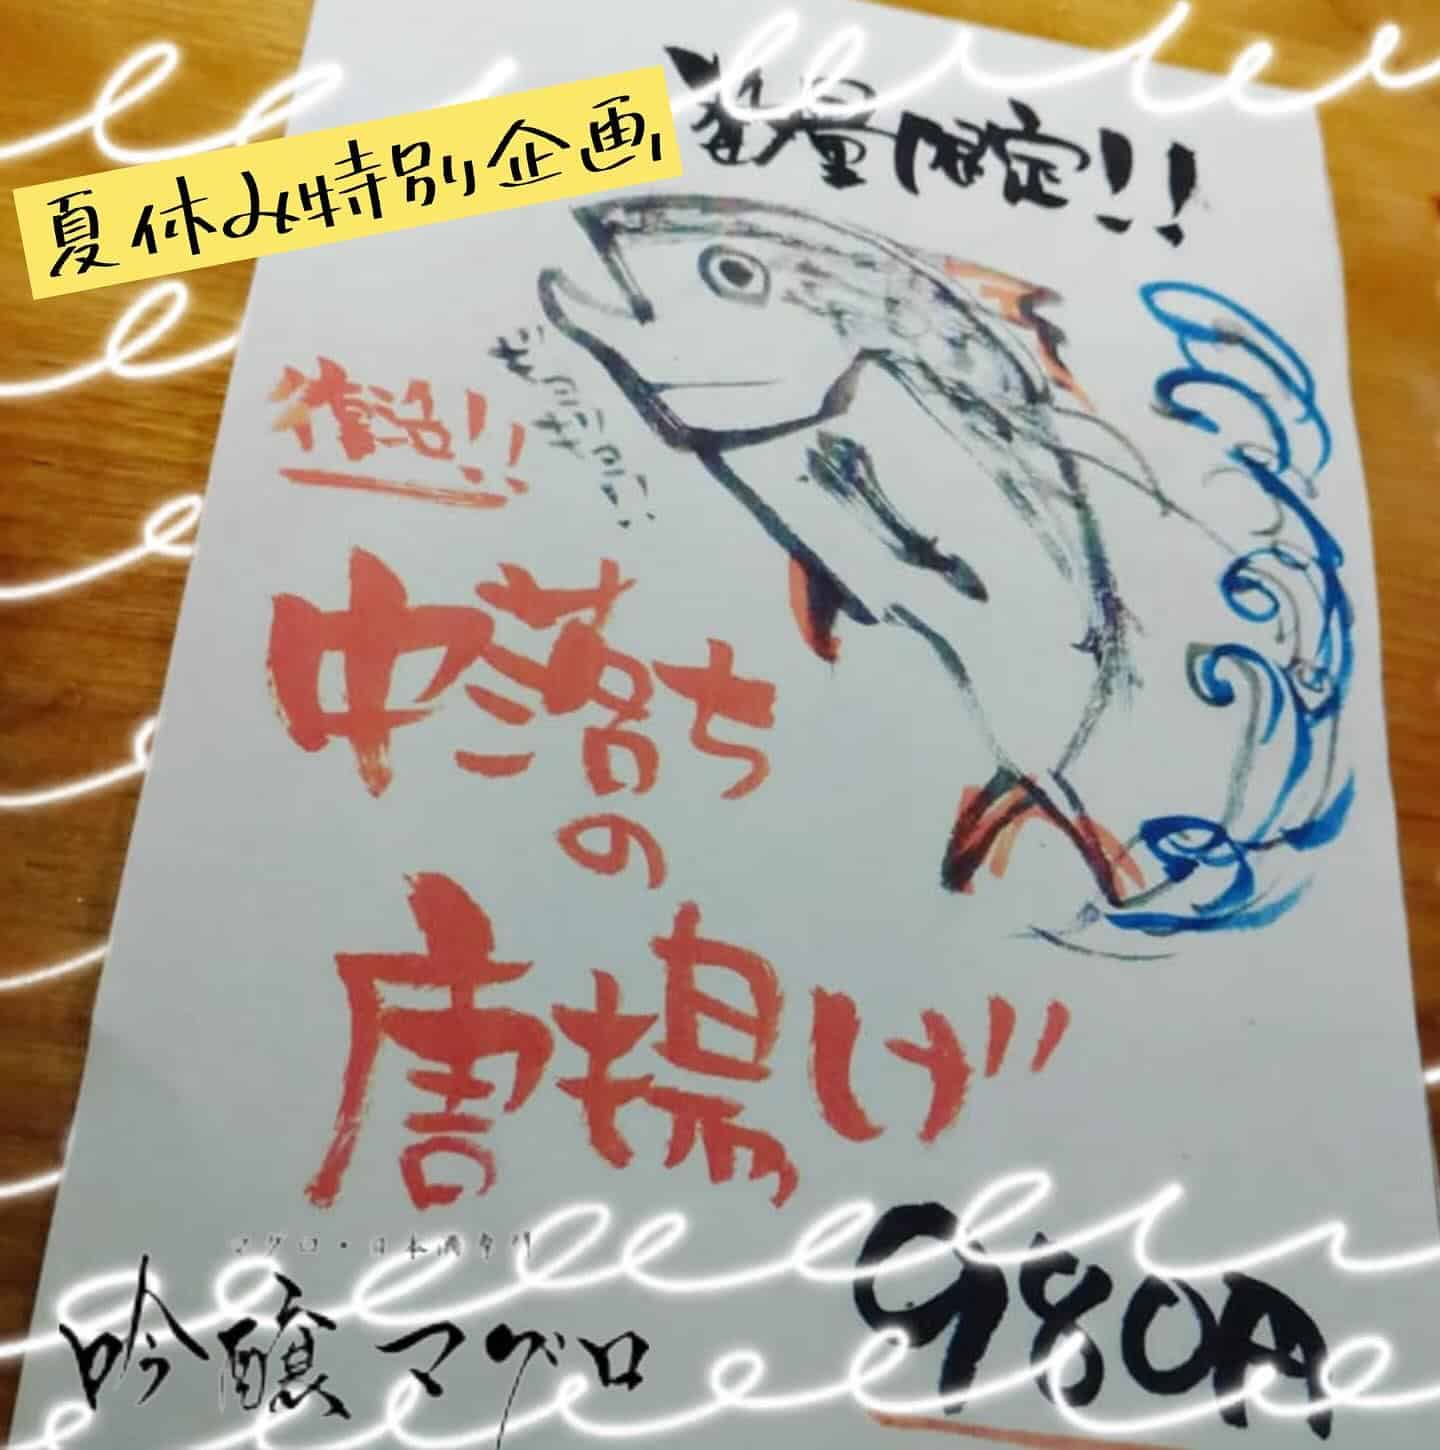 夏休み特別企画
数量限定!!
復活!!
中落ち
の
唐揚げ
マグロ・日本酒専門
吟醸マグロ
980円